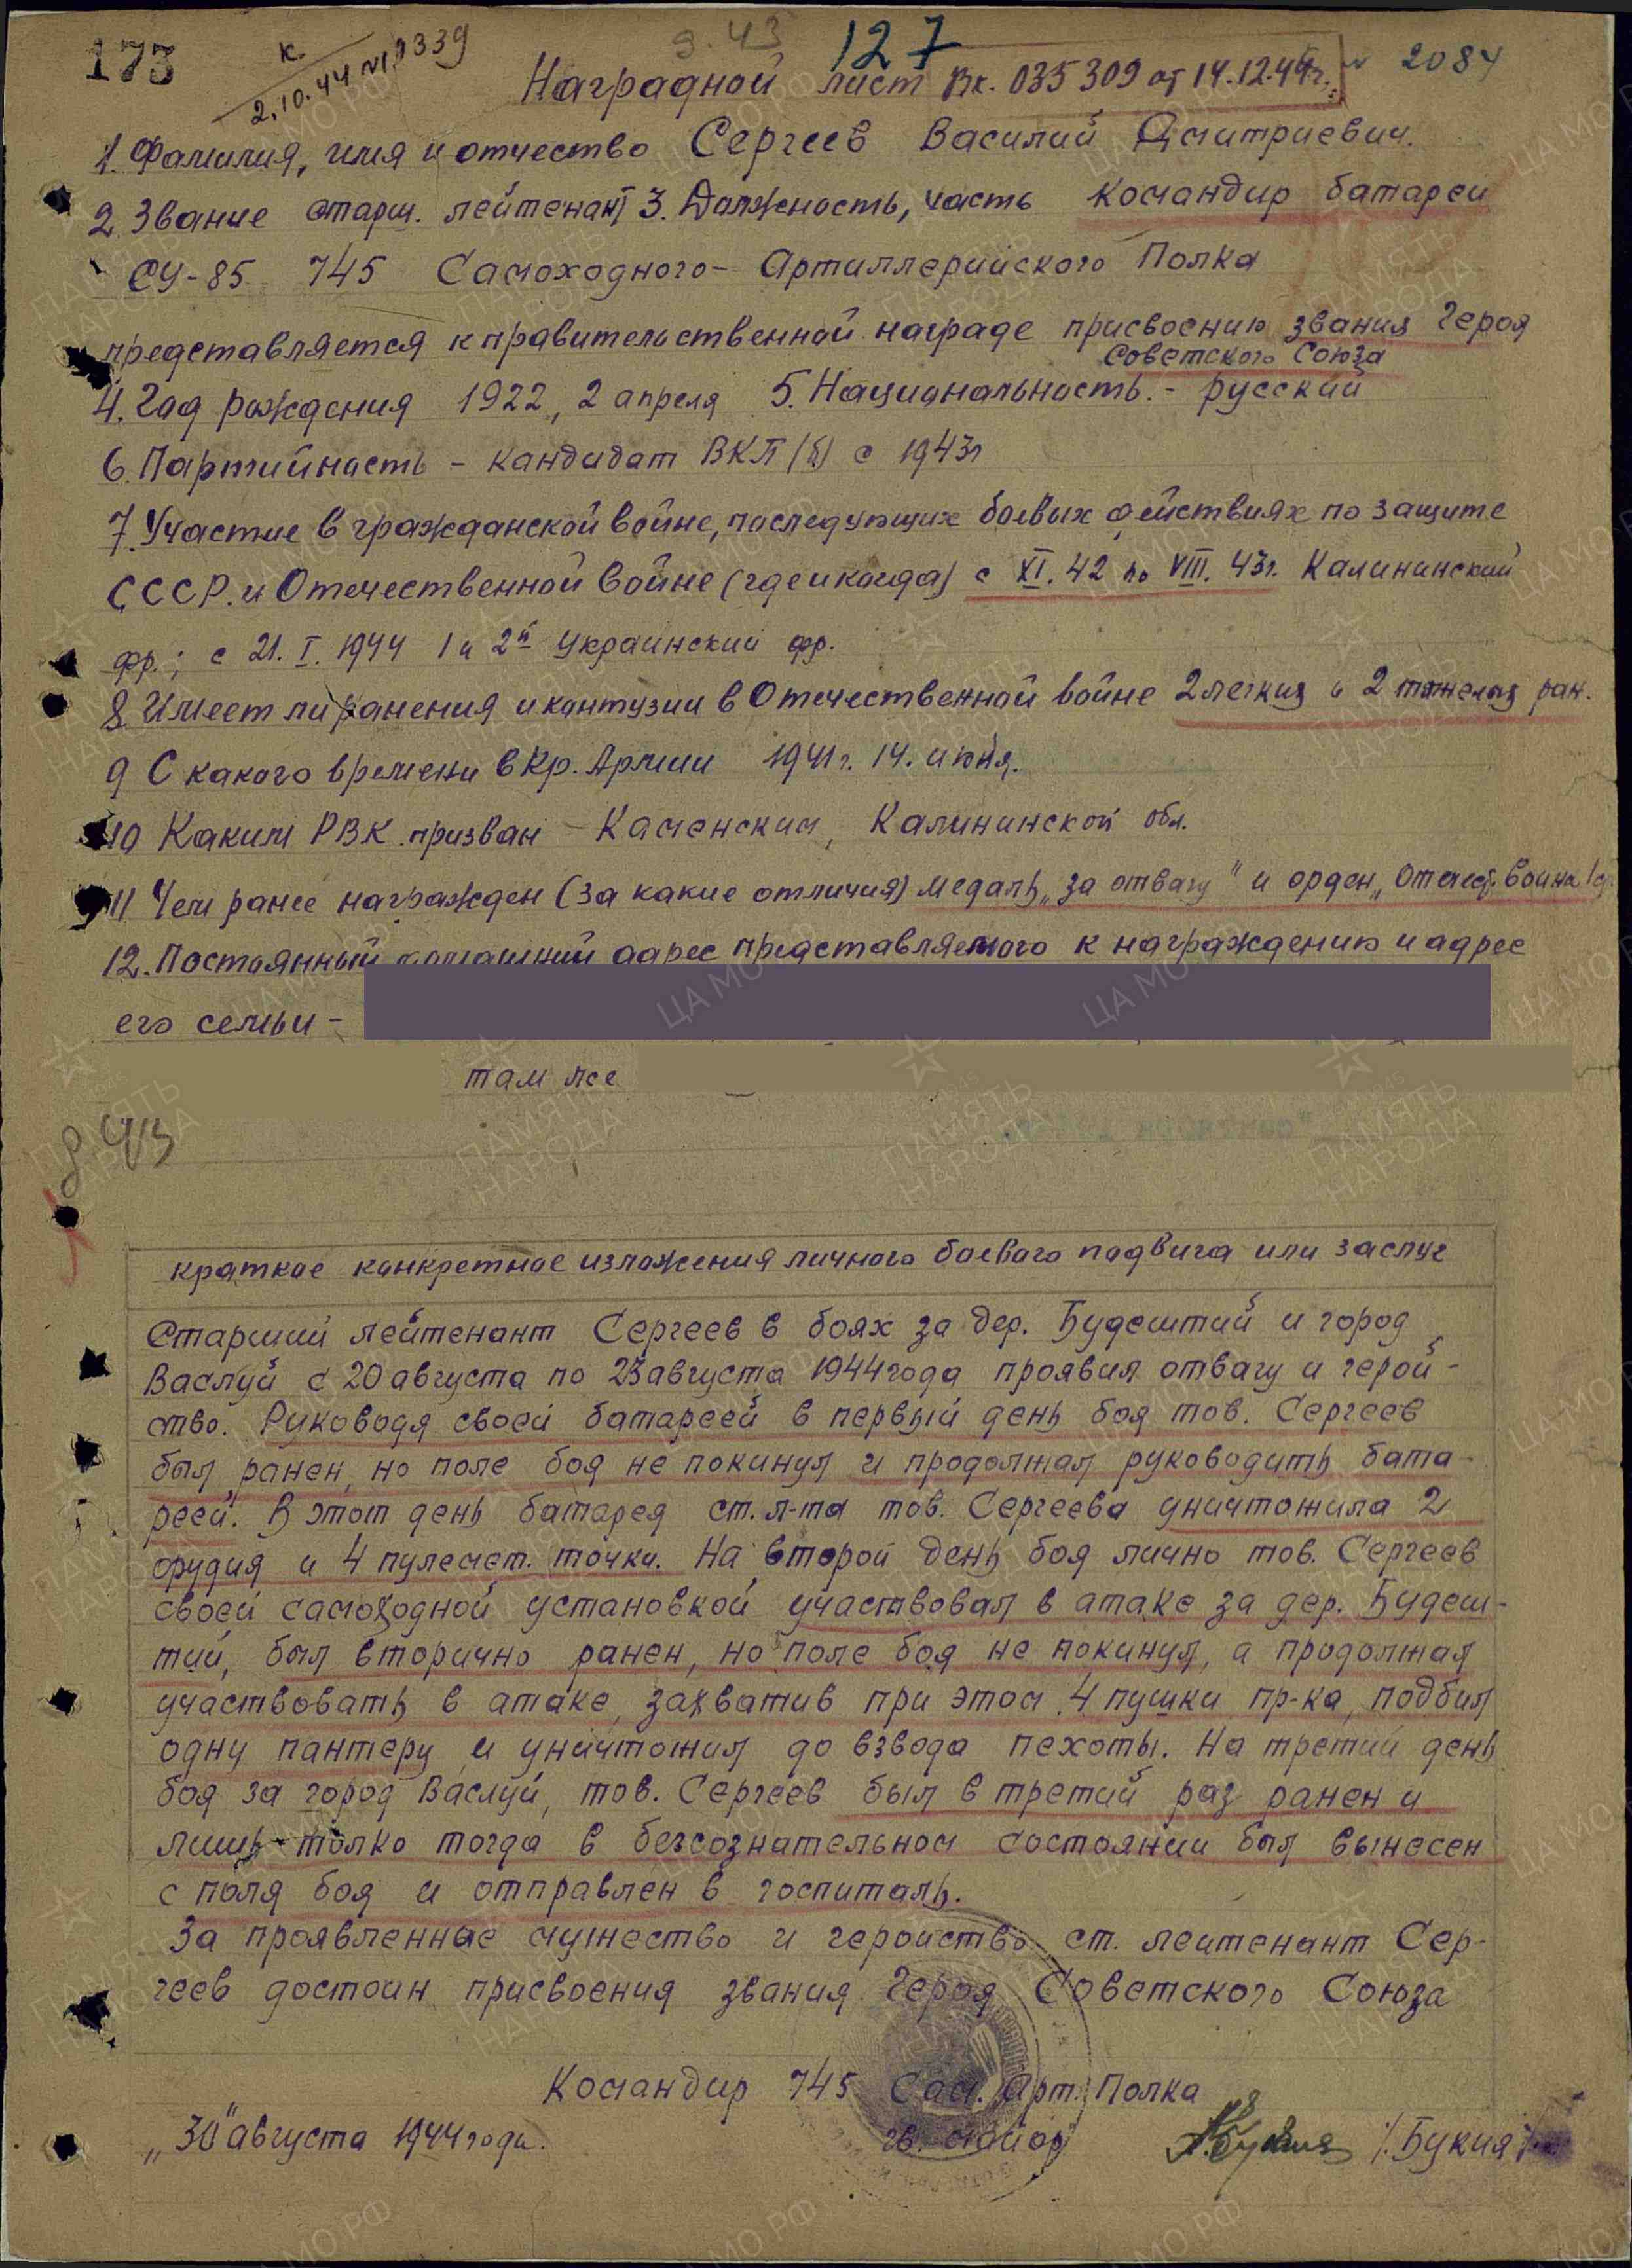 173
к
2.10.44 №19339
9.43
127
№ 2084
Наградной лист Вх. 035309 от 14.12.44г.
1. Фамилия, имя и отчество Сергеев Василий Дмитриевич.
2. Звание старш. лейтенант 3. Должность, часть командир батареи
СУ-85 745 Самоходного-Артиллерийского Полка
представляется к правительственной награде присвоению звания Героя
Советского Союза
4. Год рождения 1922, 2 апреля 5. Национальность. - русский
6. Партийность - кандидат ВКП(б) с 1943г
7. Участие в гражданской войне, последующих боевых действиях по защите
СССР. и Отечественной войне (где и когда) с XI. 42 по VIII. 43г. Калининский
фр.; с 21. I. 1944 1 и 2й Украинский фр.
8. Имеет ли ранения и контузии в Отечественной войне 2 легких и 2 тяжелых ран.
9 С какого времени в Кр. Армии 1941г. 14.
10 Каким РВК. призван - Каменским, Калининской обл.
11 Чем ранее награжден (за какие отличия) медаль „за отвагу" и орден „Отечест. война
12. Постоянный домашний адрес представляемого к награждению и адрес
его семьи -
там же
ПАМЯТЬ НАРОДА
ЦА МО РФ
краткое конкретное изложения личного боевого подвига или заслуг
Старший лейтенант Сергеев в боях за дер. Будештий и город
Васлуй с 20 августа по 23 августа 1944 года проявил отвагу и герой-
ство. Руководя своей батареей в первый день боя тов. Сергеев
был ранен, но поле боя не покинул и продолжал руководить бата-
реей. В этот день батарея ст. л-та тов. Сергеева уничтожила 2
орудия и 4 пулемет. точки. На второй день боя лично тов. Сергеев
своей самоходной установкой участвовал в атаке за дер. Будеш-
тий, был вторично ранен, но поле боя не покинул, а продолжал
участвовать в атаке, захватив при этом 4 пушки пр-ка, подбил
одну пантеру и уничтожил до взвода пехоты. На третий день
боя за город Васлуй, тов. Сергеев был в третий раз ранен и
лишь-толко тогда в безсознательном состоянии был вынесен
с поля боя и отправлен в госпиталь.
За проявленные мужество и геройство ст. лейтенант Сер-
геев достоин присвоения звания Героя Советского Союза
Командир 745 Сам. Арт. Полка
„30" августа 1944 года. гв. майор /.Букия/